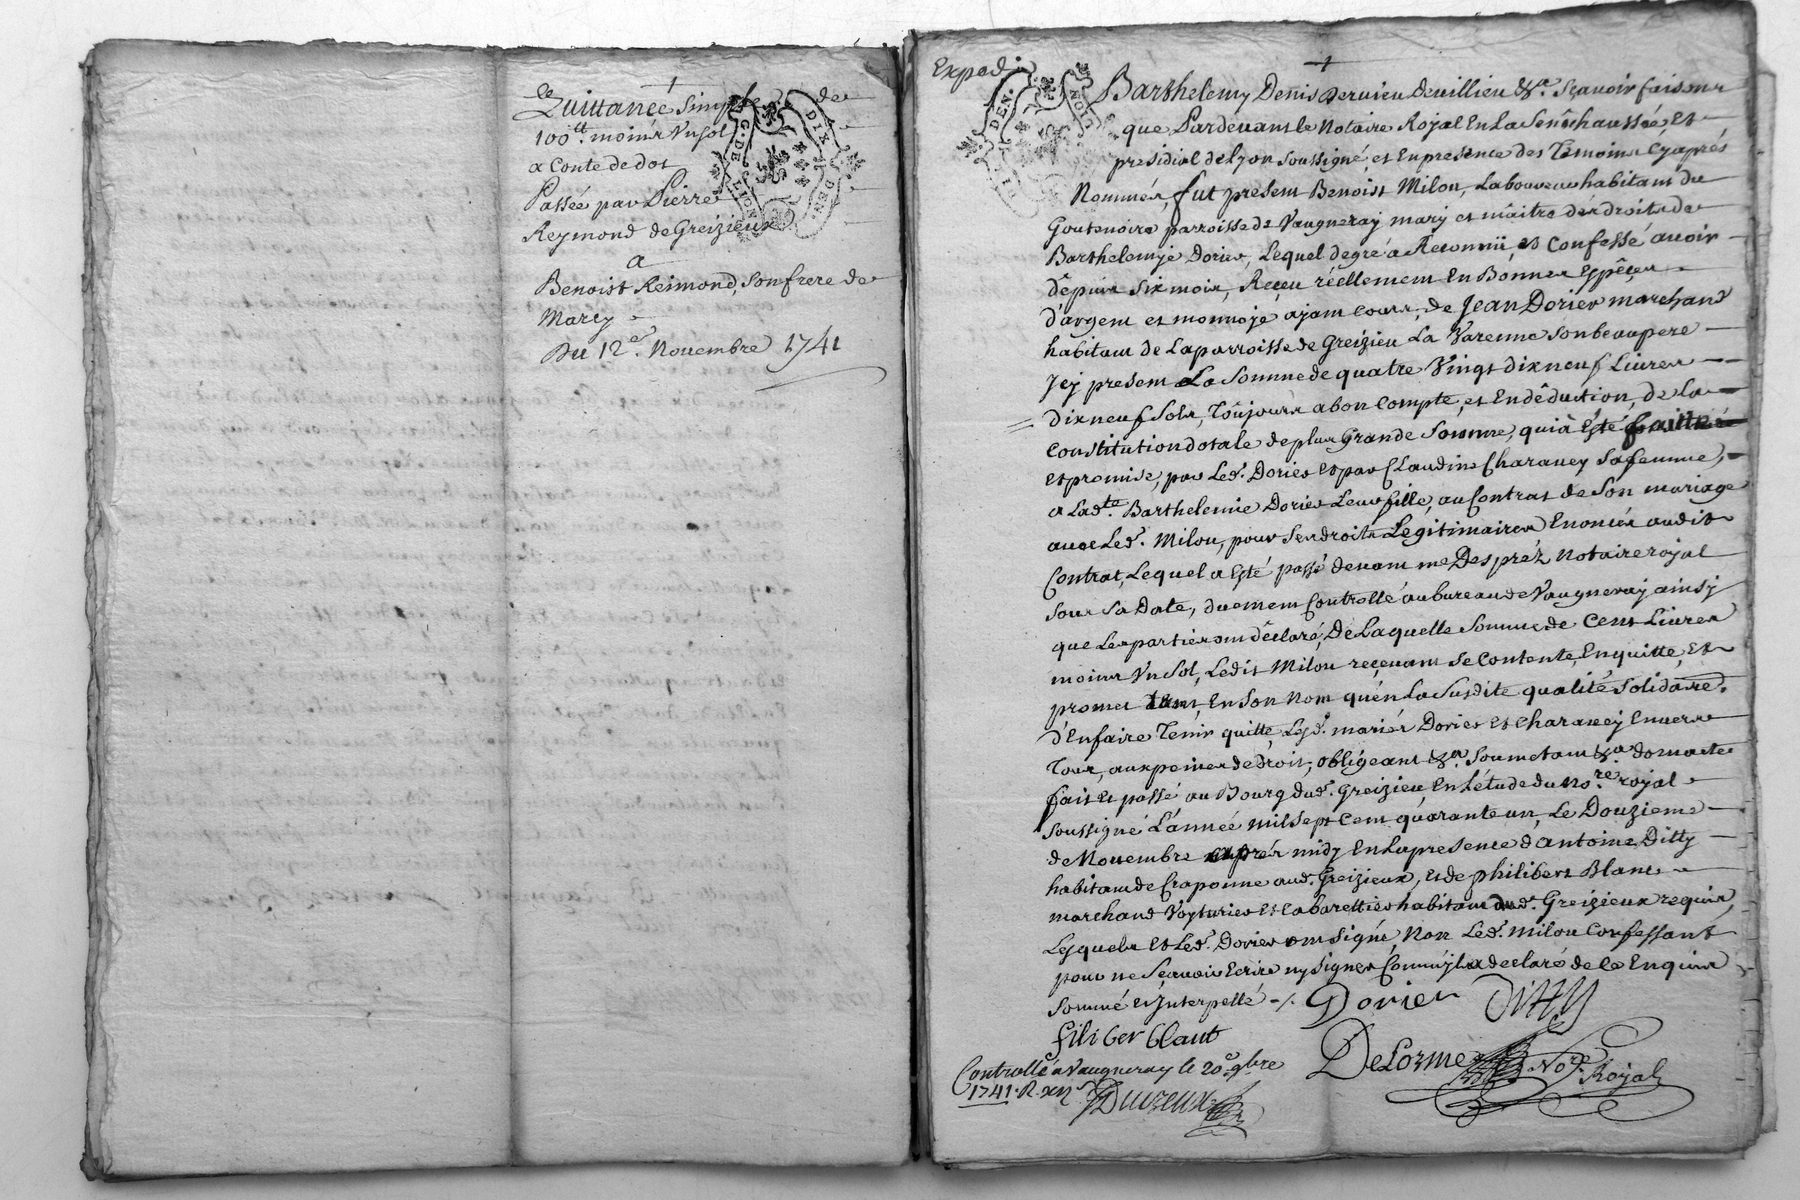 Quittance simple de
100tt. moins Un sol
a Conte de dot
Passée par Pierre
Reymond de Greizieux
a
Benoist Reimond, son frere de
Marcy
Du 12e. Novembre 1741
G. DE LION
DIX DEN.
Exped
Barthelemy Denis Dervieu Devillieu &c. Sçavoir faisons
que Pardevant le Notaire Royal En La Senêchaussée, Et
presidial de Lyon soussigné, et En presence des Têmoins Cyaprés
Nommés, fut present Benoist Milou, Laboureur habitant du
Goutenoire parroisse de Vaugneray mary et mâitre des droits de
Barthelemye Dorier, Lequel de gré à Reconnü, et Confessé avoir
dêpuis six mois, Reçeu réellement En Bonnes Espêçes
d'argent et monnoye ayant Cours, de Jean Dorier marchand
habitant de La parroisse de Greizieu La Varenne son beaupere
Jcy present La Somme de quatre Vingt dix neuf Livres
dix neuf Sols, Tôujours a bon Compte, et En dêduction, de La
Constitution dotale de plus Grande Somme, qui à Eté faitte
Et promise, par Led. Dorier et par Claudine Charavey sa femme,
a Ladte. Barthelemie Dorier Leur fille, au Contrat de Son mariage
avec Led. Milou, pour Ses droits Legitimaires Enoncés audit
Contrat, Lequel a Eté passé devant me Despréz Notaire royal
sous sa Date, duement Controllé au bureau de Vaugneray ainsy
que Les parties ont dêclaré, De Laquelle Somme de Cent Livres
moins Un Sol, Ledit Milou reçevant se Contente, En quitte, Et
promet tant En Son Nom qu'en La Susdite qualité Solidaire
d'En faire Tenir quitte, Lesd. mariés Dorier et Charavey Envers
Tous, aux peines de droit, obligeant &a. Soumetant &a dont acte
fait Et passé au Bourg dud. Greizieu En L'étude du Nore. royal
soussigné L'année mil Sept Cent quarante un, Le Douzieme
de Novembre aprés midy En La presence d'antoine Ditty
habitant de Craponne aud. Greizieux, et de philibert Blanc
marchand Voyturier Et Cabarettier habitant dud. Greizieux requis,
Lesquels et Led. Dorier ont signé, Non Led. Milou Confessant
pour ne Sçavoir Ecrire ny signer Comm'jl a declaré de ce Enquis
sommé et Jnterpellé
Dorier Ditty
filiber blanc
Delorme Nore. Royal
Controllé à Vaugneray le 20e. 9bre
1741. R. xij s.